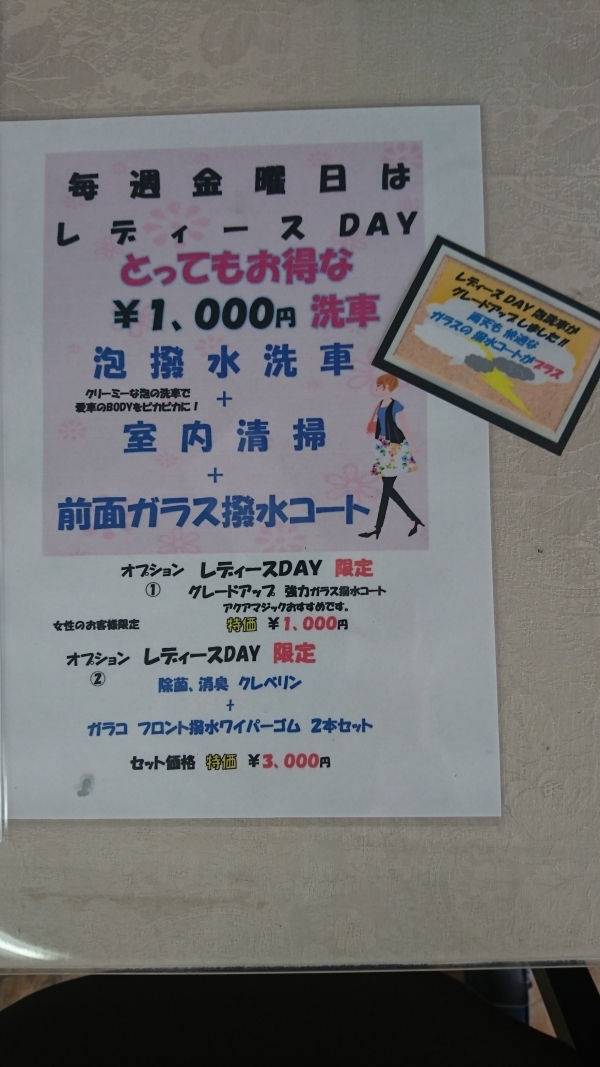 毎週金曜日は
レディースDAY
とってもお得な
¥1、000円 洗車
泡撥水洗車
クリーミーな泡の洗車で
愛車のBODYをピカピカに！
+
室内清掃
+
前面ガラス撥水コート
オプション レディースDAY 限定
① グレードアップ 強力ガラス撥水コート
アクアマジックおすすめです。
女性のお客様限定 特価 ¥1、000円
オプション レディースDAY 限定
②
除菌、消臭 クレベリン
+
ガラコ フロント撥水ワイパーゴム 2本セット
セット価格 特価 ¥3、000円
レディースDAY 泡洗車が
グレードアップしました!!
雨天も 快適な
ガラスの 撥水コートがプラス